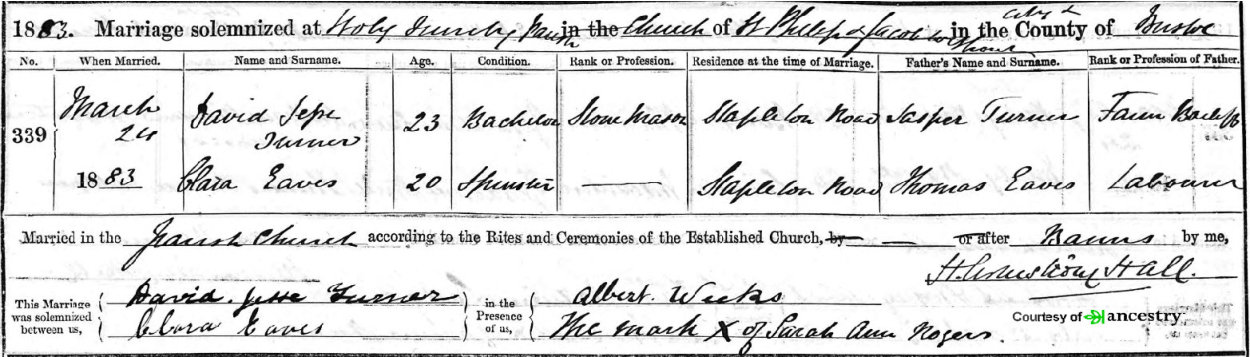 1883. Marriage solemnized at Holy Trinity Parish in the Church of St Philip & Jacob without in the City & County of Bristol
No. When Married. Name and Surname. Age. Condition. Rank or Profession. Residence at the time of Marriage. Father's Name and Surname. Rank or Profession of Father.
339 March 24 David Jesse Turner 23 Bachelor Stone Mason Stapleton Road Jasper Turner Farm Bailiff
1883 Clara Eaves 20 Spinster — Stapleton Road Thomas Eaves Labourer
Married in the Parish Church according to the Rites and Ceremonies of the Established Church, by — or after Banns by me,
H. Hall.
This Marriage was solemnized between us, David Jesse Turner in the Presence of us, Albert Weeks
Clara Eaves The mark X of Sarah Ann Rogers.
Courtesy of ancestry